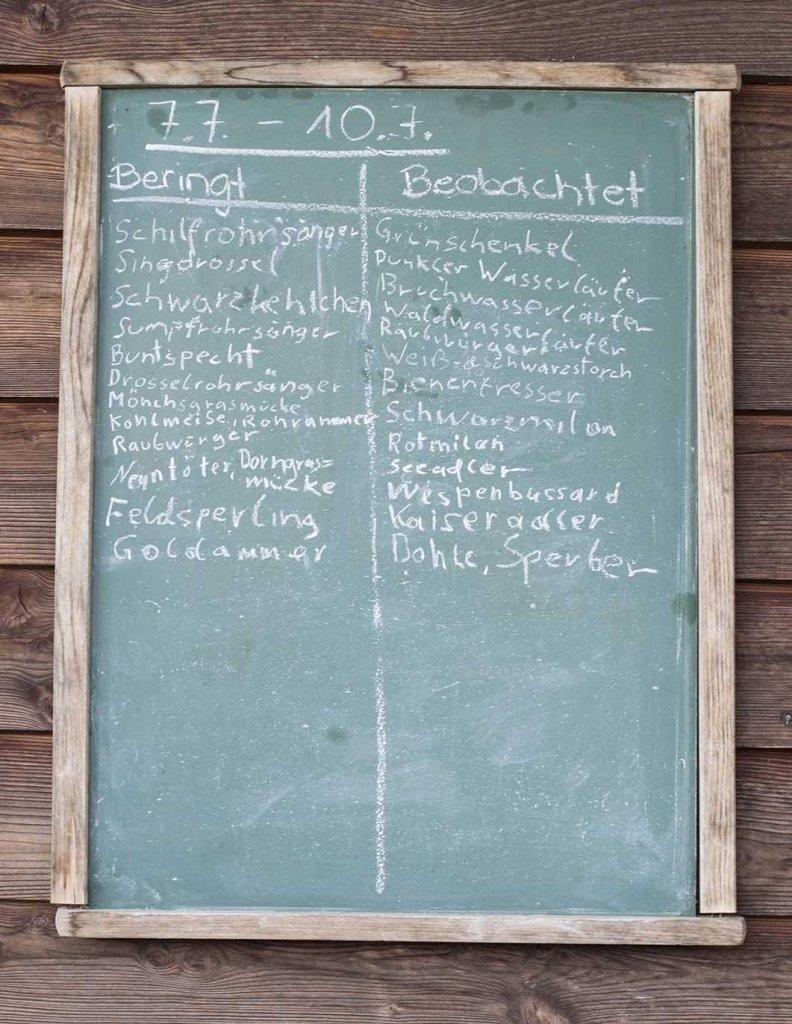 7.7. - 10.7.
Beringt
Schilfrohrsänger
Singdrossel
Schwarzkehlchen
Sumpfrohrsänger
Buntspecht
Drosselrohrsänger
Mönchsgrasmücke
Kohlmeise, Rohrammer
Raubwürger
Neuntöter, Dorngras=
mücke
Feldsperling
Goldammer
Beobachtet
Grünschenkel
Dunkler Wasserläufer
Bruchwasserläufer
Waldwasserläufer
Weiß- & schwarzstorch
Bienenfresser
Schwarzmilan
Rotmilan
Seeadler
Wespenbussard
Kaiseradler
Dohle, Sperber